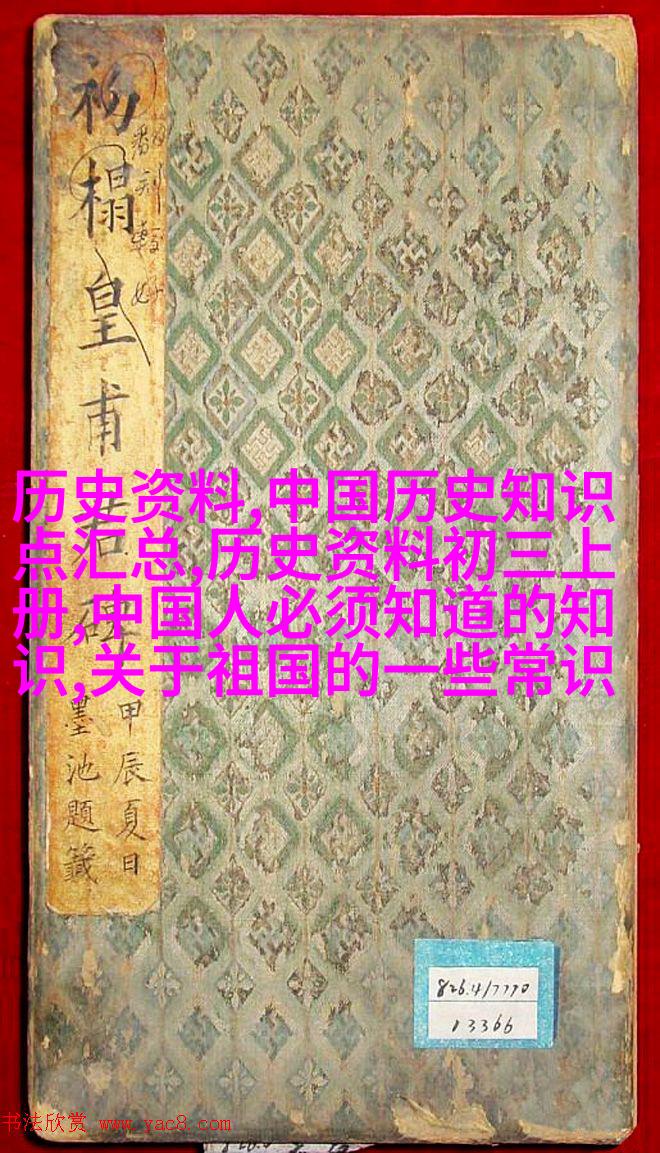 初榻皇甫君碑
甲辰夏日
墨池題籤
历史资料,中国历史知识
点汇总,历史资料初三上
册,中国人必须知道的知
识,关于祖国的一些常识
826.4/7770
13366
书法欣赏 www.yac8.com